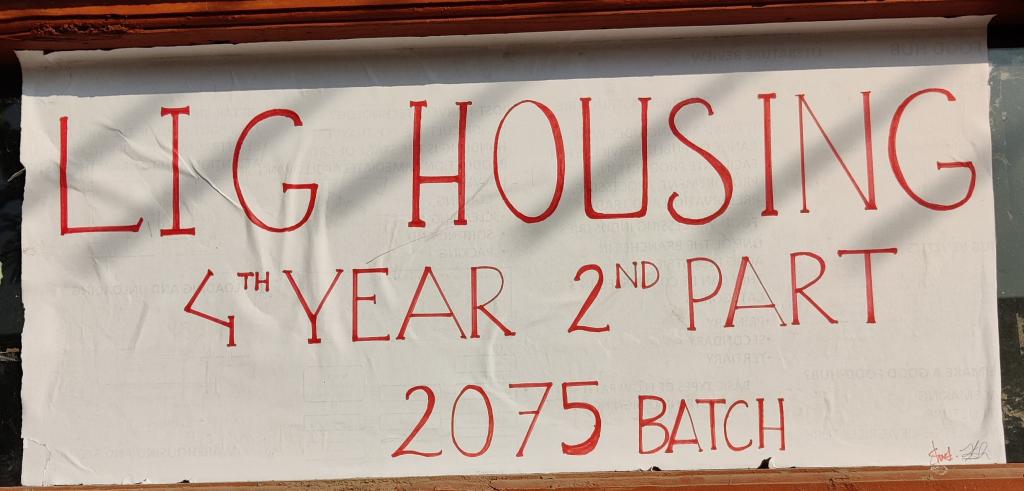 LIG HOUSING
4TH YEAR 2ND PART
2075 BATCH